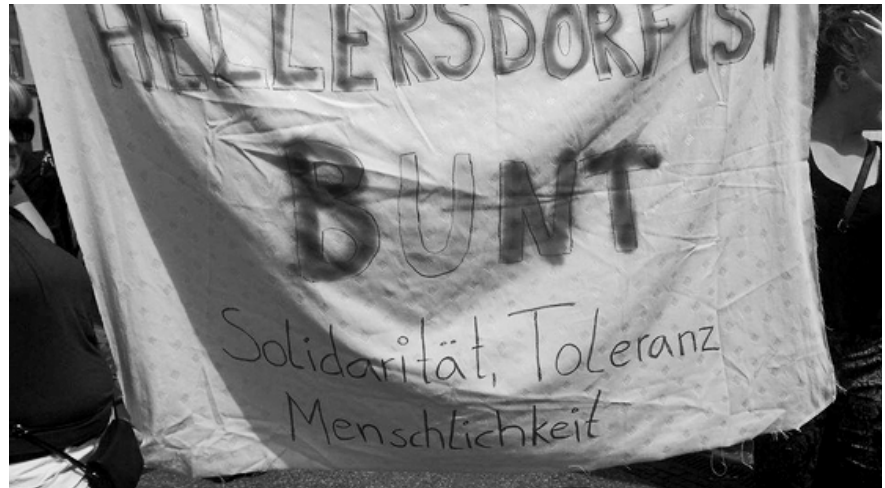 HELLERSDORF IST
BUNT
Solidarität, Toleranz
Menschlichkeit